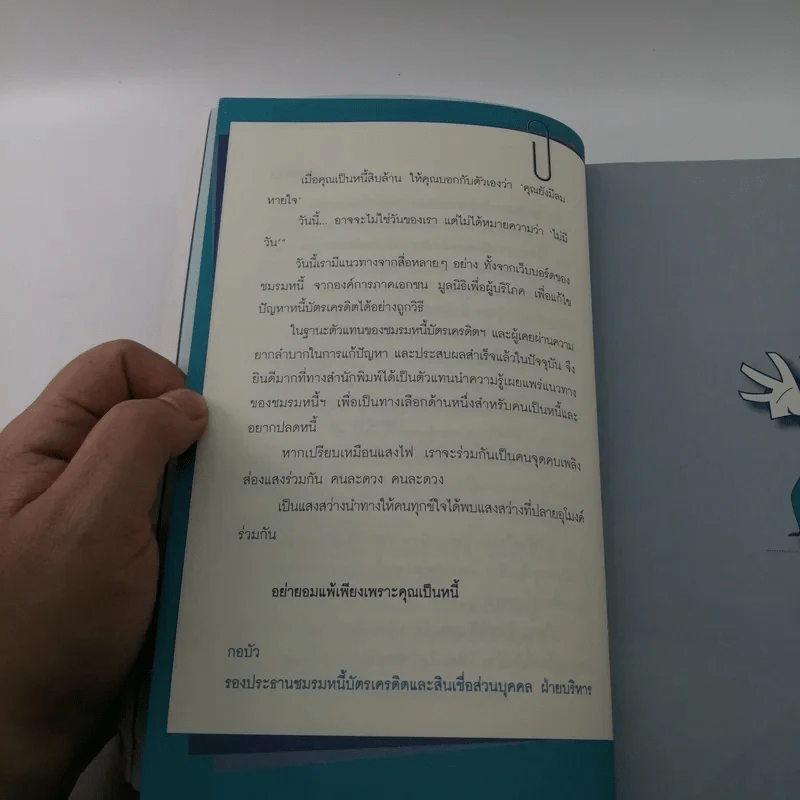 เมื่อคุณเป็นหนี้สิบล้าน ให้คุณบอกกับตัวเองว่า 'คุณยังมีลม
หายใจ'
วันนี้... อาจจะไม่ใช่วันของเรา แต่ไม่ได้หมายความว่า 'ไม่มี
วัน'"
วันนี้เรามีแนวทางจากสื่อหลายๆ อย่าง ทั้งจากเว็บบอร์ดของ
ชมรมหนี้ จากองค์การภาคเอกชน มูลนิธิเพื่อผู้บริโภค เพื่อแก้ไข
ปัญหาหนี้บัตรเครดิตได้อย่างถูกวิธี
ในฐานะตัวแทนของชมรมหนี้บัตรเครดิตฯ และผู้เคยผ่านความ
ยากลำบากในการแก้ปัญหา และประสบผลสำเร็จแล้วในปัจจุบัน จึง
ยินดีมากที่ทางสำนักพิมพ์ได้เป็นตัวแทนนำความรู้เผยแพร่แนวทาง
ของชมรมหนี้ฯ เพื่อเป็นทางเลือกด้านหนึ่งสำหรับคนเป็นหนี้และ
อยากปลดหนี้
หากเปรียบเหมือนแสงไฟ เราจะร่วมกันเป็นคนจุดคบเพลิง
ส่องแสงร่วมกัน คนละดวง คนละดวง
เป็นแสงสว่างนำทางให้คนทุกข์ใจได้พบแสงสว่างที่ปลายอุโมงค์
ร่วมกัน
อย่ายอมแพ้เพียงเพราะคุณเป็นหนี้
กอบัว
รองประธานชมรมหนี้บัตรเครดิตและสินเชื่อส่วนบุคคล ฝ่ายบริหาร